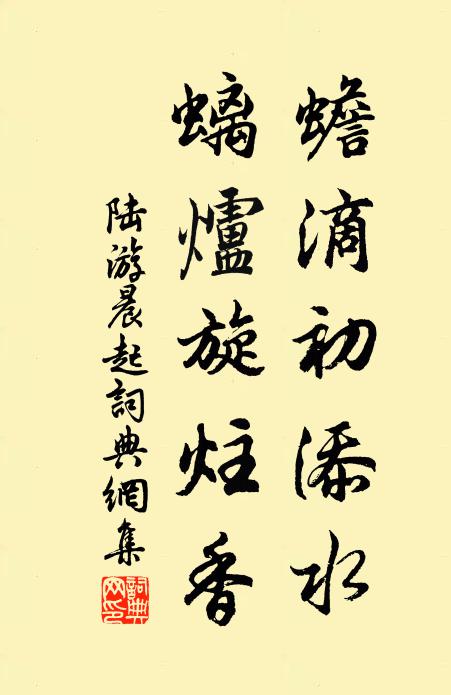 蟾滴初添水
螭爐旋炷香
陆游晨起詞典網集
詞典
网印